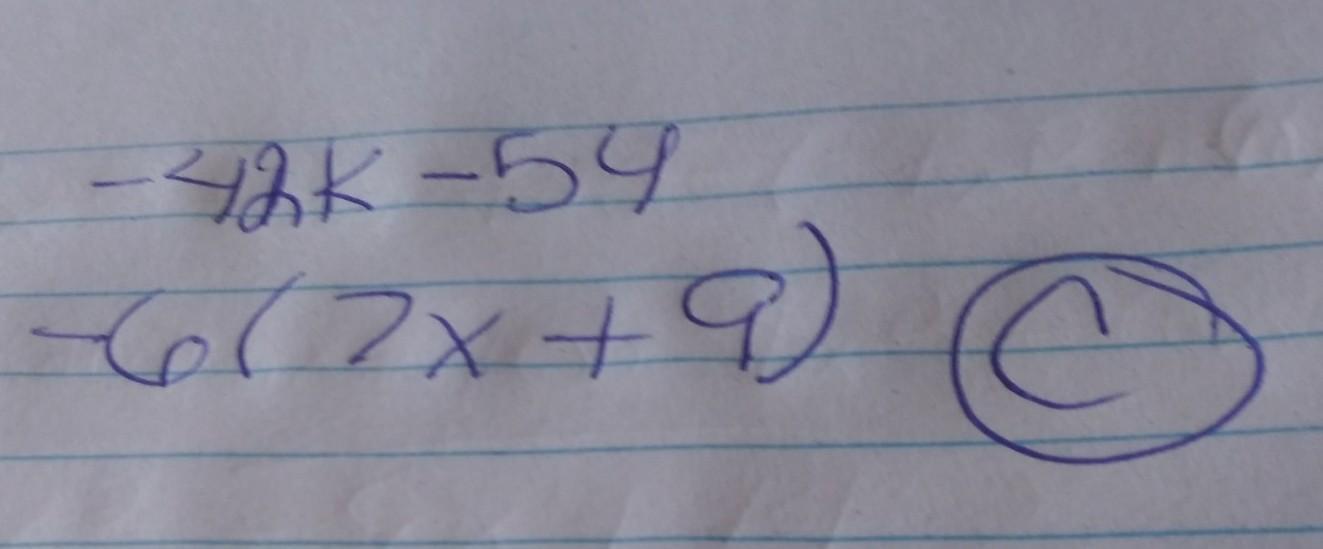 -42k -54
-6(7x + 9) C